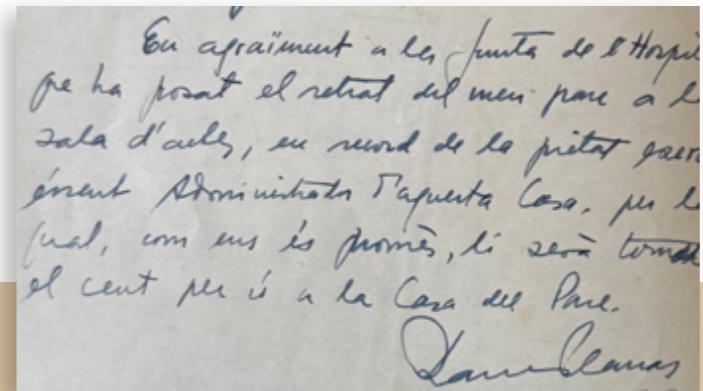 En agraïment a la Junta de l'Hospi
que ha posat el retrat del meu pare a l
sala d'actes, en record de la pietat exer
éssent Administrador d'aquesta Casa, per l
qual, com ens és promès, li serà torna
el cent per u a la Casa del Pare.
Planas